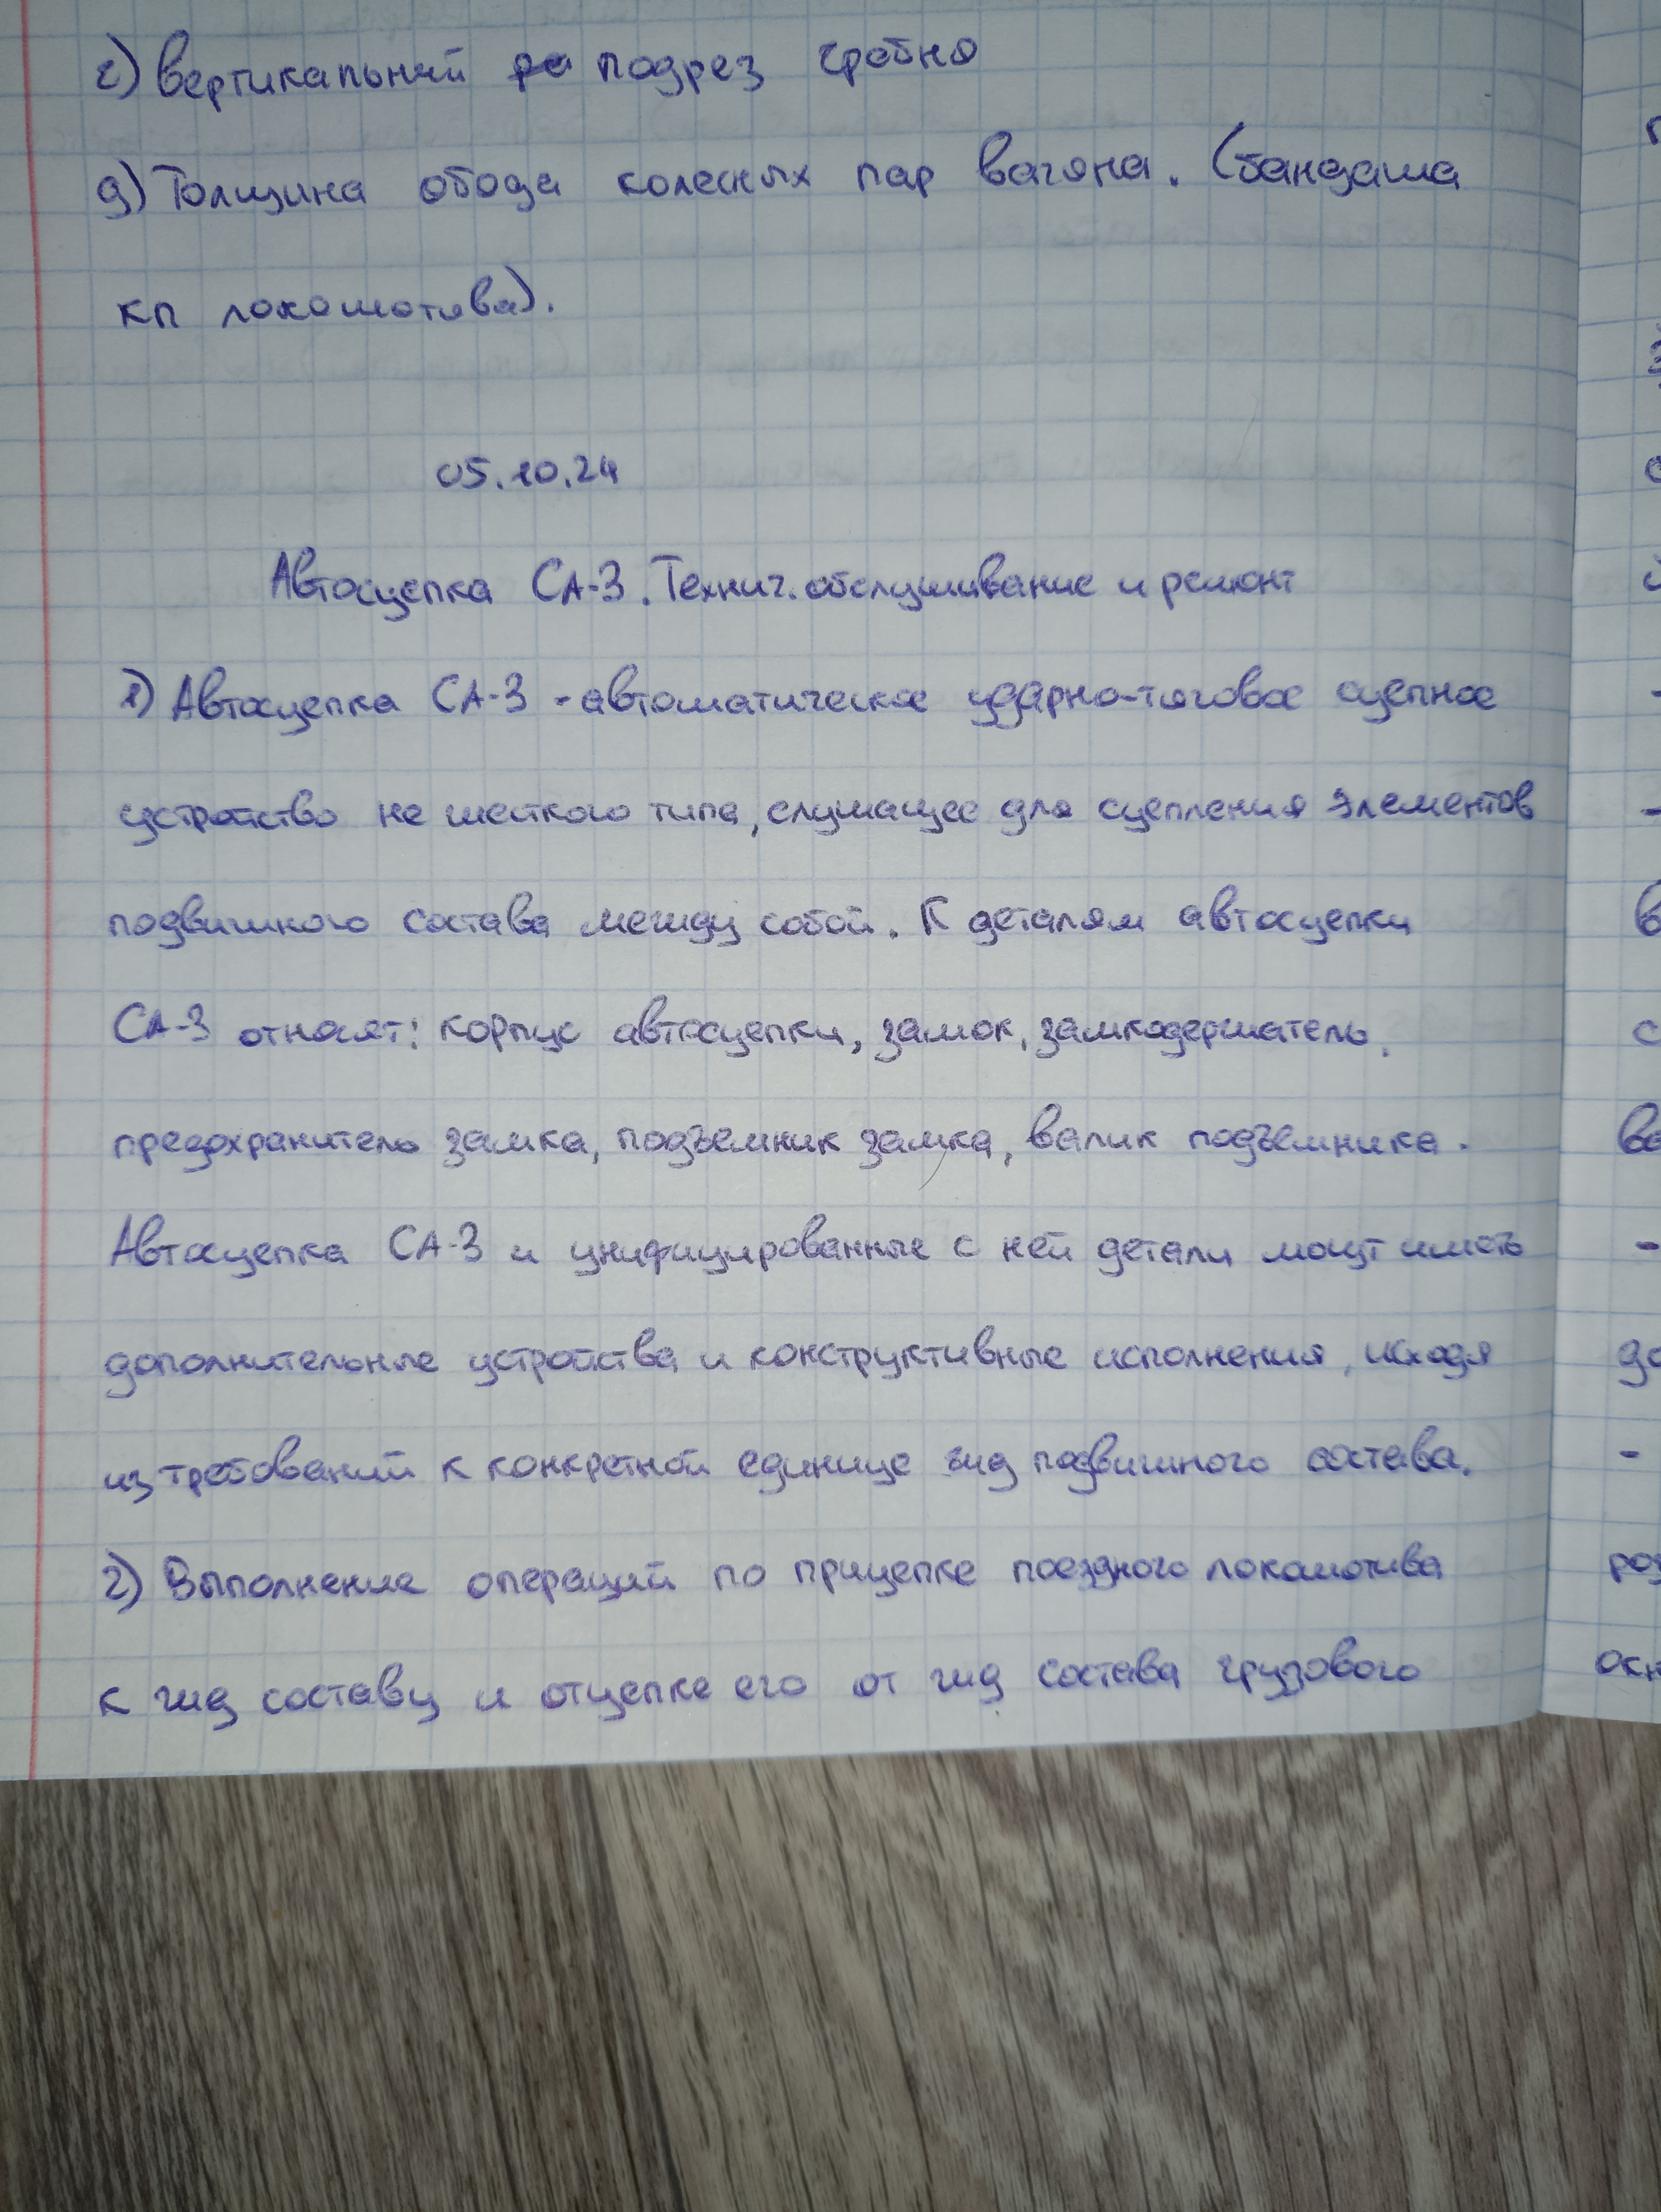 г) вертикальный подрез гребня
д) Толщина обода колесных пар вагона. (бандажа
кп локомотива).
05.10.24
Автосцепка СА-3. Технич. обслуживание и ремонт
1) Автосцепка СА-3 - автоматическое ударно-тяговое сцепное
устройство не жесткого типа, служащее для сцепления элементов
подвижного состава между собой. К деталям автосцепки
СА-3 относят: корпус автосцепки, замок, замкодержатель,
предохранитель замка, подъемник замка, валик подъемника.
Автосцепка СА-3 и унифицированные с ней детали могут иметь
дополнительные устройства и конструктивные исполнения, исходя
из требований к конкретной единице жд подвижного состава.
2) Выполнение операций по прицепке поездного локомотива
к жд составу и отцепке его от жд состава грузового